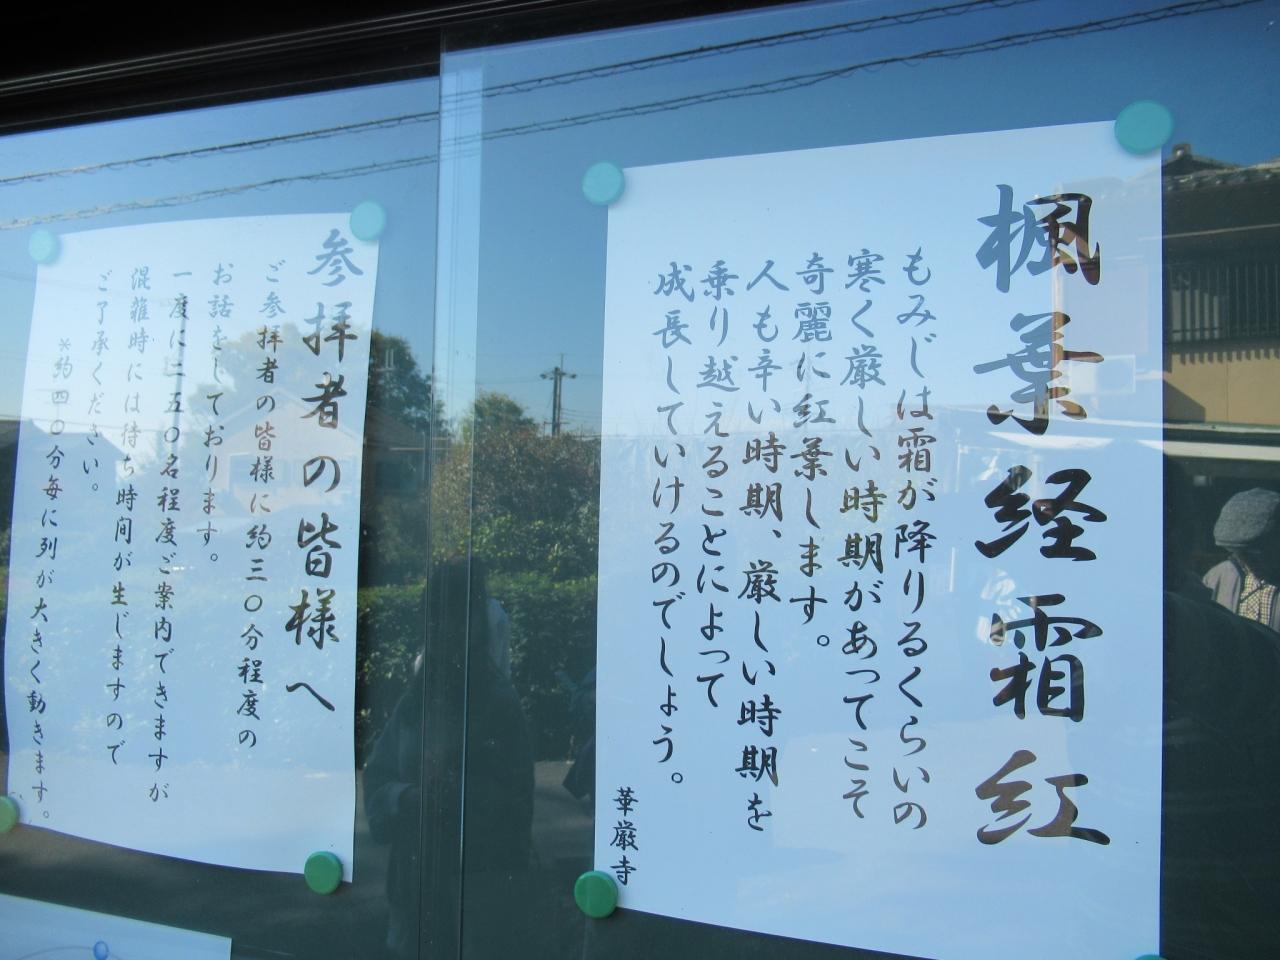 楓葉経霜紅
もみじは霜が降りるくらいの
寒く厳しい時期があってこそ
奇麗に紅葉します。
人も辛い時期、厳しい時期を
乗り越えることによって
成長していけるのでしょう。
華厳寺
参拝者の皆様へ
ご参拝者の皆様に約三〇分程度の
お話をしております。
一度に二五〇名程度ご案内できますが
混雑時には待ち時間が生じますので
ご了承ください。
*約四〇分毎に列が大きく動きます。